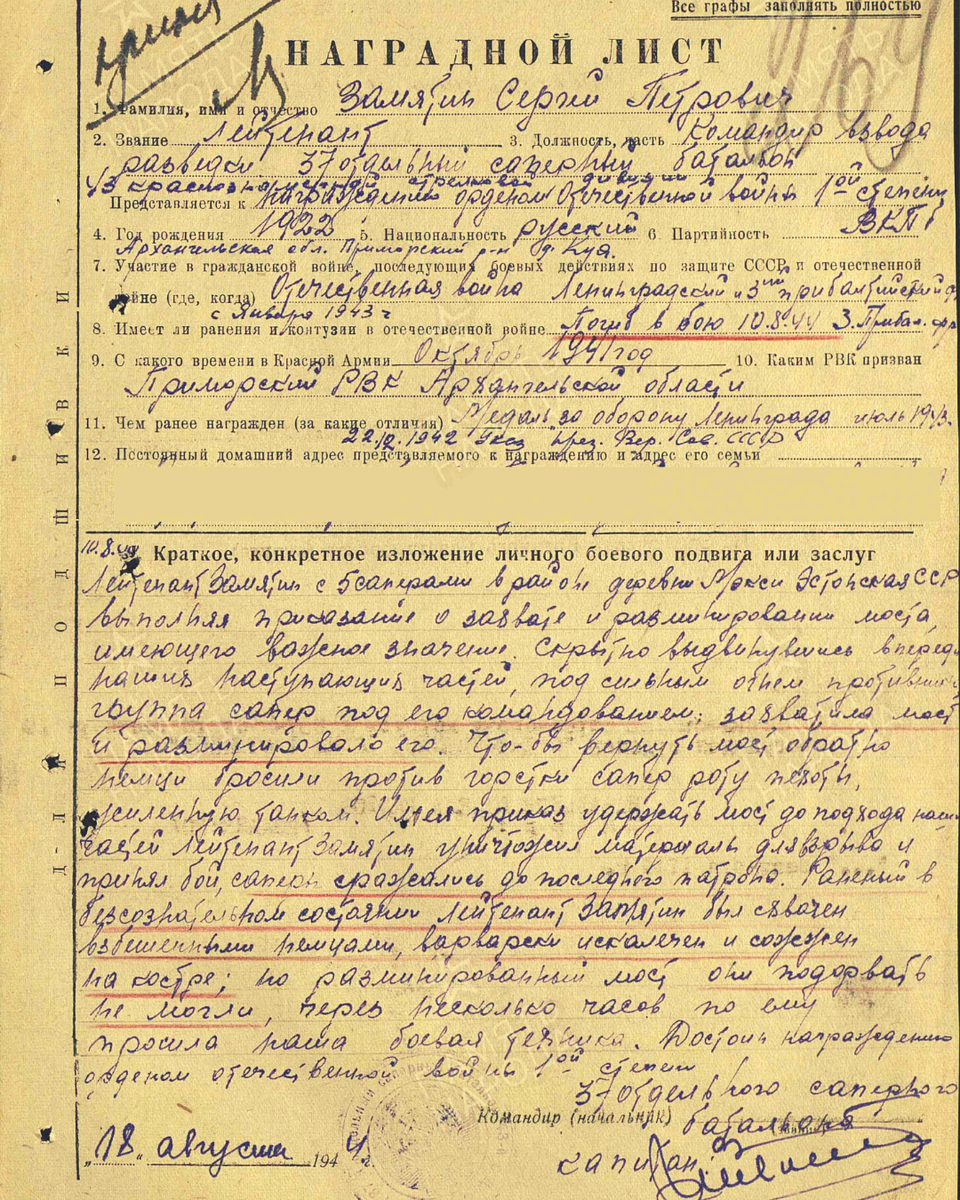 Все графы заполнять полностью
НАГРАДНОЙ ЛИСТ
1. Фамилия, имя и отчество Замятин Сергей Петрович
2. Звание Лейтенант 3. Должность, часть Командир взвода
разведки 37 отдельный саперный батальон
43 краснознаменной стрелковой дивизии
Представляется к награждению орденом Отечественной войны 1ой степени
4. Год рождения 1922 5. Национальность русский 6 Партийность ВКПб
Архангельская обл. Приморский р-н д. Куя.
7. Участие в гражданской войне, последующих боевых действиях по защите СССР и отечественной
войне (где, когда) Отечественная война Ленинградский и 3ий прибалтийский ф
с Января 1943 г
8. Имеет ли ранения и контузии в отечественной войне Погиб в бою 10.8.44 3. Прибал. фр
9. С какого времени в Красной Армии Октябрь 1941 год 10. Каким РВК призван
Приморский РВК Архангельской области
11. Чем ранее награжден (за какие отличия) Медаль за оборону Ленинграда июль 1943.
22.12.1942 Указ през. Вер. Сов. СССР
12. Постоянный домашний адрес представляемого к награждению и адрес его семьи
ДЛЯ ПОДШИВКИ
10.8.44 Краткое, конкретное изложение личного боевого подвига или заслуг
Лейтенант Замятин с 5 саперами в районе деревни Эстонская ССР
выполняя приказание о захвате и разминировании моста,
имеющего важное значение. Скрытно выдвинувшись вперед
наших наступающих частей, под сильным огнем противника
группа сапер под его командованием, захватила мост
и разминировало его. Что-бы вернуть мост обратно
немцы бросили против горстки сапер роту пехоты,
усиленную танком. Имея приказ удержать мост до подхода наш
частей Лейтенант Замятин уничтожил материалы для взрыва и
принял бой, саперы сражались до последнего патрона. Раненый в
безсознательном состоянии Лейтенант Замятин был схвачен
взбешенными немцами, варварски искалечен и сожжен
на костре; но разминированный мост они подорвать
не могли, через несколько часов по ему
прошла наша боевая техника. Достоин награждению
орденом отечественной войны 1ой степени
37 отдельного саперного
Командир (начальник) батальона
капитан
„18" августа 1944 г.